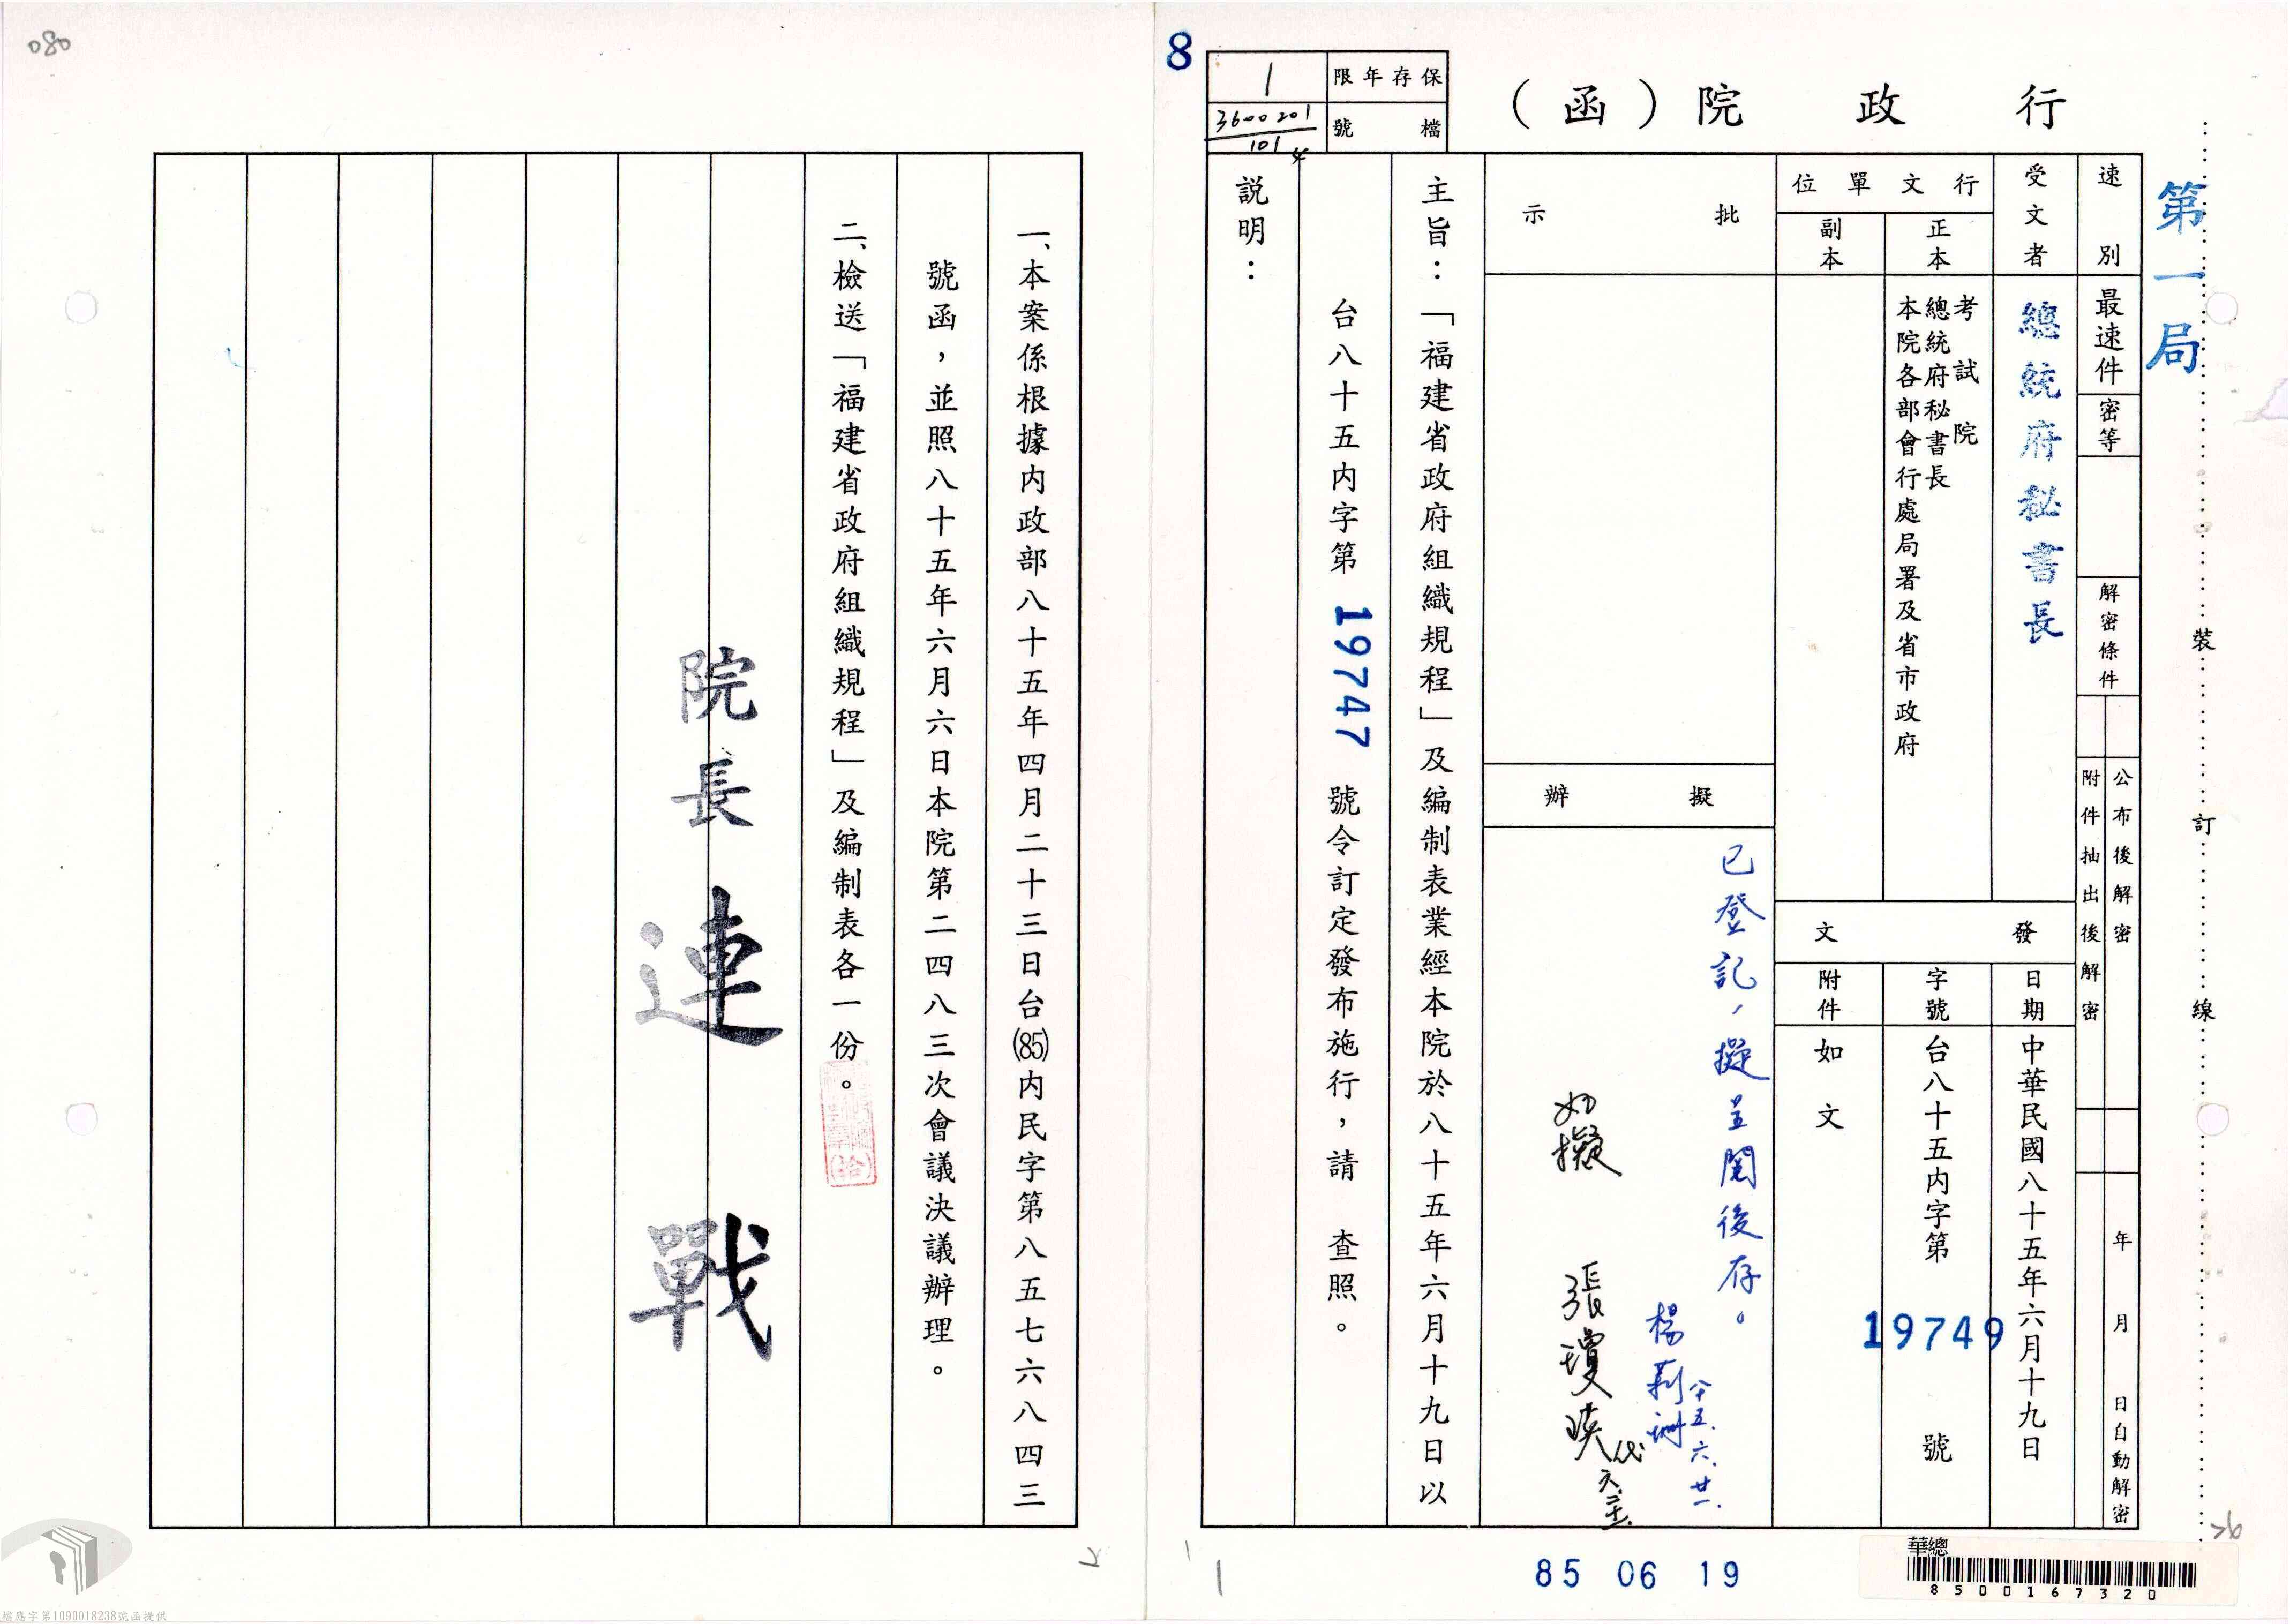 行政院（函）
保存年限
1
檔號
3600201
101
4
8
第一局
速別
最速件
密等
解密條件
公布後解密
附件抽出後解密
年月日自動解密
受文者
總統府秘書長
行文單位
正本
考試院
總統府秘書長
本院各部會行處局署及省市政府
副本
發文
日期
中華民國八十五年六月十九日
字號
台八十五內字第19749號
附件
如文
批示
擬辦
已登記，擬呈閱後存。
八十五.六.廿一.
如擬
主旨：「福建省政府組織規程」及編制表業經本院於八十五年六月十九日以
台八十五內字第19747號令訂定發布施行，請　查照。
說明：
裝訂線
85 06 19
華總
8500167320
1
一、本案係根據內政部八十五年四月二十三日台(85)內民字第八五七六八四三
號函，並照八十五年六月六日本院第二四八三次會議決議辦理。
二、檢送「福建省政府組織規程」及編制表各一份。
院長連戰
080
檔應字第1090018238號函提供